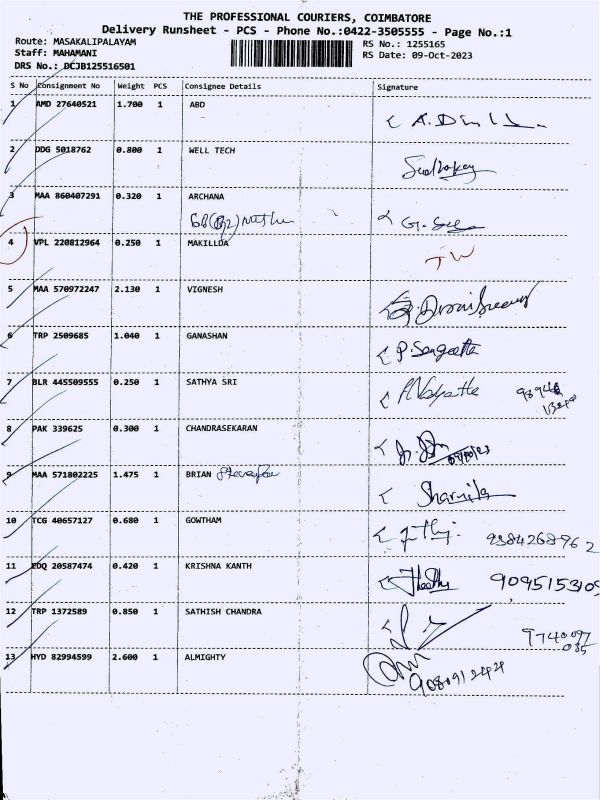 THE PROFESSIONAL COURIERS, COIMBATORE
Delivery Runsheet - PCS - Phone No.:0422-3505555 - Page No.:1
Route: MASAKALIPALAYAM
Staff: MAHAMANI
DRS No.: DCJB125516501
RS No.: 1255165
RS Date: 09-Oct-2023
S No Consignment No Weight PCS Consignee Details Signature
1 AMD 27640521 1.700 1 ABD
2 DDG 5018762 0.800 1 WELL TECH
3 MAA 860407291 0.320 1 ARCHANA
4 VPL 220812964 0.250 1 MAKILLDA
TW
5 MAA 570972247 2.130 1 VIGNESH
6 TRP 2509685 1.040 1 GANASHAN P. Sangeetha
7 BLR 445509555 0.250 1 SATHYA SRI
8 PAK 339625 0.300 1 CHANDRASEKARAN
9 MAA 571802225 1.475 1 BRIAN Sharmila
10 TCG 40657127 0.680 1 GOWTHAM 9384268962
11 EDQ 20587474 0.420 1 KRISHNA KANTH 9095153109
12 TRP 1372589 0.850 1 SATHISH CHANDRA 9740097
035
13 HYD 82994599 2.600 1 ALMIGHTY